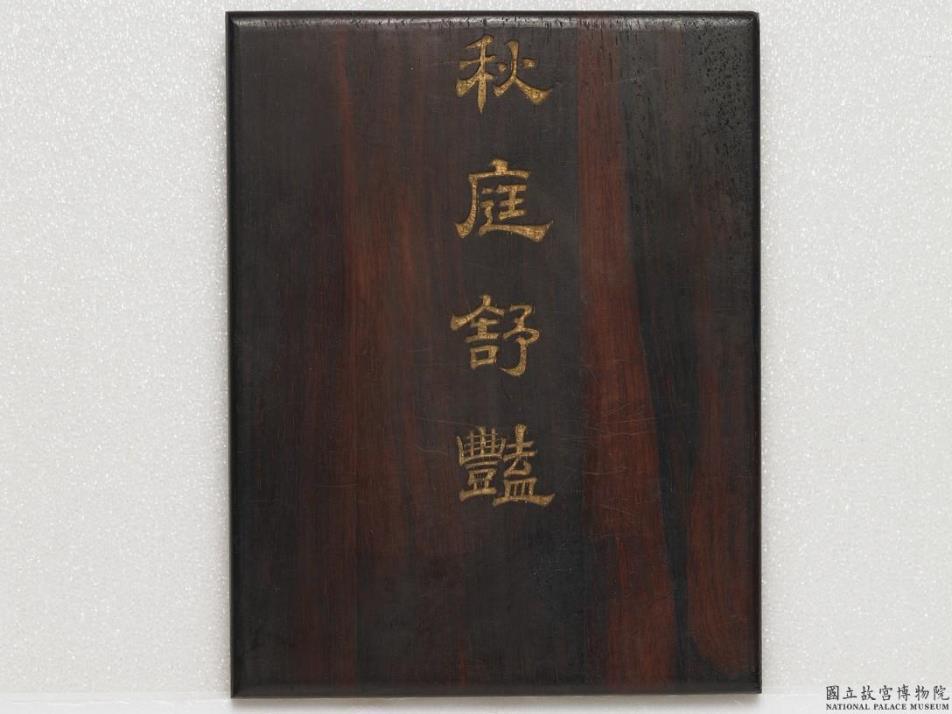 秋庭舒豔
國立故宮博物院
NATIONAL PALACE MUSEUM